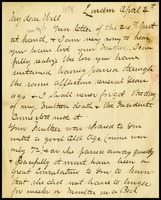 London April 2nd
My dear Will
Your letter of the 24 Inst
at hand & I am very sorry to hear
you have lost your Mother. I can
fully realize the loss you have
sustained having passed through
the same affliction several years
ago & I shall never forget the day
of my Mothers death & the Incidents
Your Mother was spared to you
until a good old Age
only 72) and she passed away quietly
& Peacefully it must have been a
great Consolation to you to know
that she did not have to linger
for weeks or months on a Bed